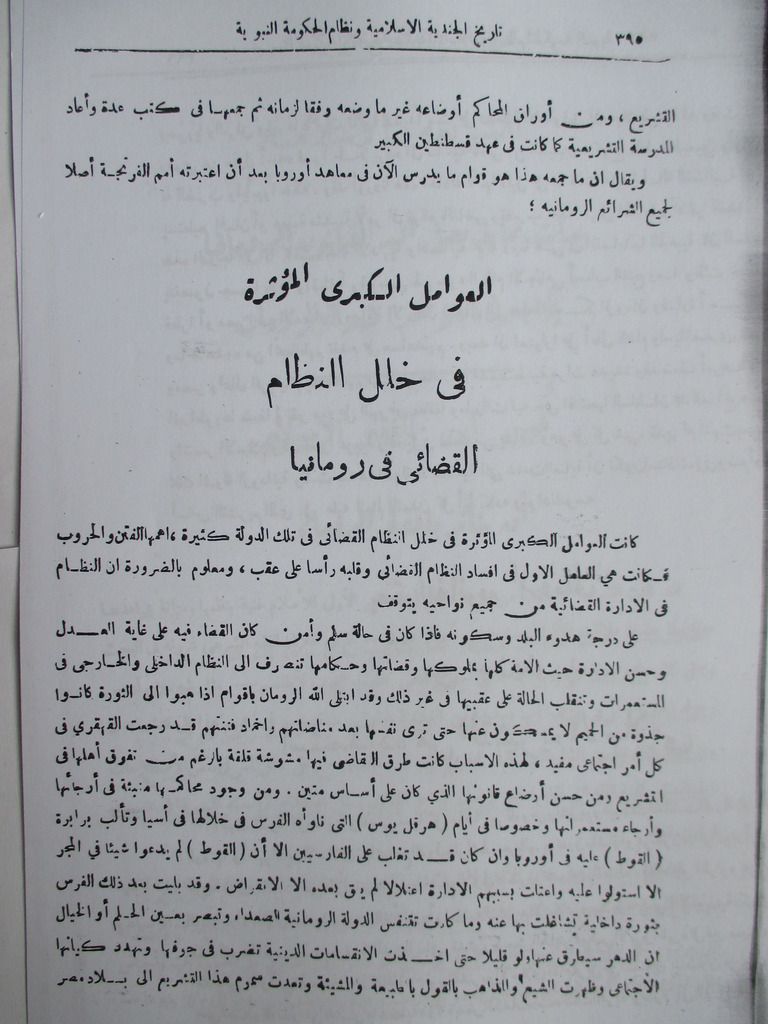 ٣٩٥ تاريخ الجندية الاسلامية ونظام الحكومة النبوية
التشريع ، ومن أوراق المحاكم أوضاعه غير ما وضعه وفقا لزمانه ثم جمعها فى كتب عدة وأعاد
المدرسة التشريعية كما كانت فى عهد قسطنطين الكبير
ويقال ان ما جمعه هذا هو قوام ما يدرس الآن فى معاهد أوروبا بعد أن اعتبرته أمم الفرنجة أصلا
لجميع الشرائع الرومانيه ؛
العوامل الكبرى المؤثرة
فى خلل النظام
القضائى فى رومانيا
كانت العوامل الكبرى المؤثرة فى خلل النظام القضائى فى تلك الدولة كثيرة ،اهمها الفتن والحروب
فكانت هي العامل الاول فى افساد النظام القضائى وقلبه رأسا على عقب ، ومعلوم بالضرورة ان النظام
فى الادارة القضائية من جميع نواحيه يتوقف
على درجة هدوء البلد وسكونه فاذا كان فى حالة سلم وأمن كان القضاء فيه على غاية العدل
وحسن الادارة حيث الامة كلها بملوكها وقضاتها وحكامها تنصرف الى النظام الداخلى والخارجى فى
المستعمرات وتنقلب الحالة على عقبيها فى غير ذلك وقد ابتلى الله الرومان باقوام اذا هبوا الى الثورة كانوا
جذوة من الجحيم لا يمسكون عنها حتى ترى نفسها بعد مناضلتهم واخماد فتنتهم قد رجعت القهقرى فى
كل أمر اجتماعى مفيد ، لهذه الاسباب كانت طرق التقاضى فيها مشوشة قلقة بالرغم من تفوق أهلها فى
التشريع ومن حسن أوضاع قانونها الذي كان على أساس متين . ومن وجود محاكمها منبثة فى أرجائها
وأرجاء مستعمراتها وخصوصا فى أيام ( هرقل يوس ) التى ناوأه الفرس فى خلالها فى أسيا وتألب برابرة
( القوط ) عليه فى أوروبا وان كان قد تغلب على الفارسيين الا أن ( القوط ) لم يدعوا شيئا في المجر
الا استولوا عليه واعتلت بسببهم الادارة اعتلالا لم يبق بعده الا الانقراض . وقد بليت بعد ذلك الفرس
بثورة داخلية تشاغلت بها عنه وما كادت تتنفس الدولة الرومانية الصعداء وتبصر بعين الحلم أو الخيال
ان الدهر سيفارق عنها ولو قليلا حتى اخذت الانقسامات الدينية تضرب فى جوفها وتهدد كيانها
الاجتماعى وظهرت الشيع والمذاهب بالقول بالطبيعة والمشيئة وتعدت سموم هذا التشريع الى بلاد مصر